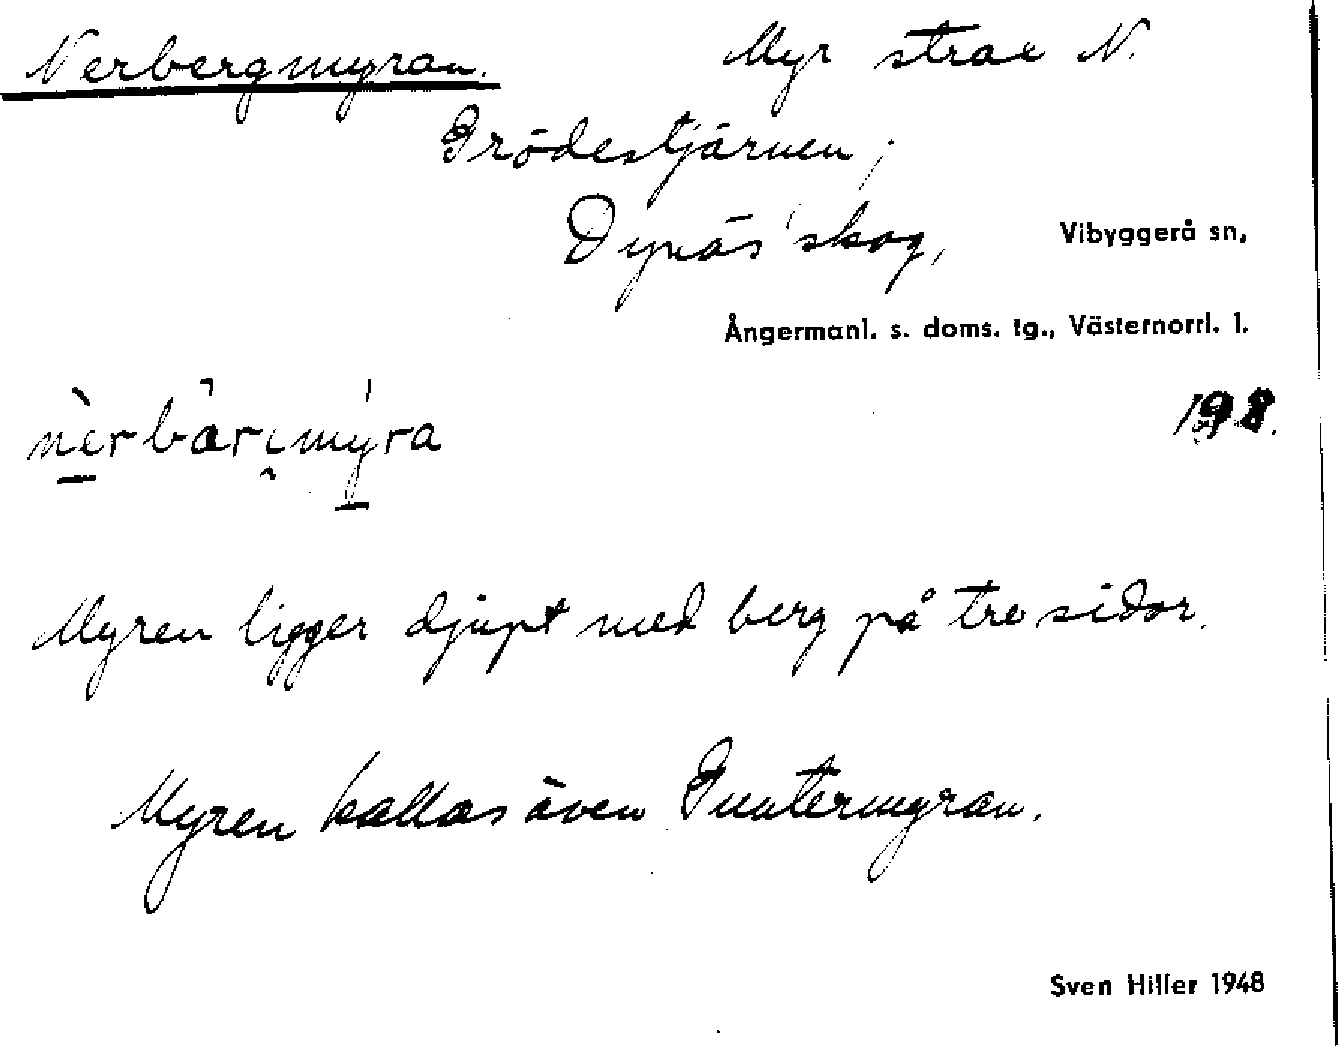 Nerbergmyran. Myr strax N.
Grödestjärnen,
Dynäs skog, Vibyggerå sn,
Ångermanl. s. doms. tg., Västernorrl. l.
198.
Myren ligger djupt med berg på tre sidor.
Myren kallas även Guntermyran.
Sven Hiller 1948